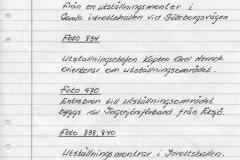 Från en utställningsmonter i
Gamla idrottshallen vid Göteborgsvägen
Foto 834
Utställningschefen Kapten Axel Herneck
orienterar om utställningsområdet.
Foto 470
Entrébron till utställningsområdet
byggs av Ingenjörförband från
Foto 838, 840
Utställningsmontrar i Idrottshallen.